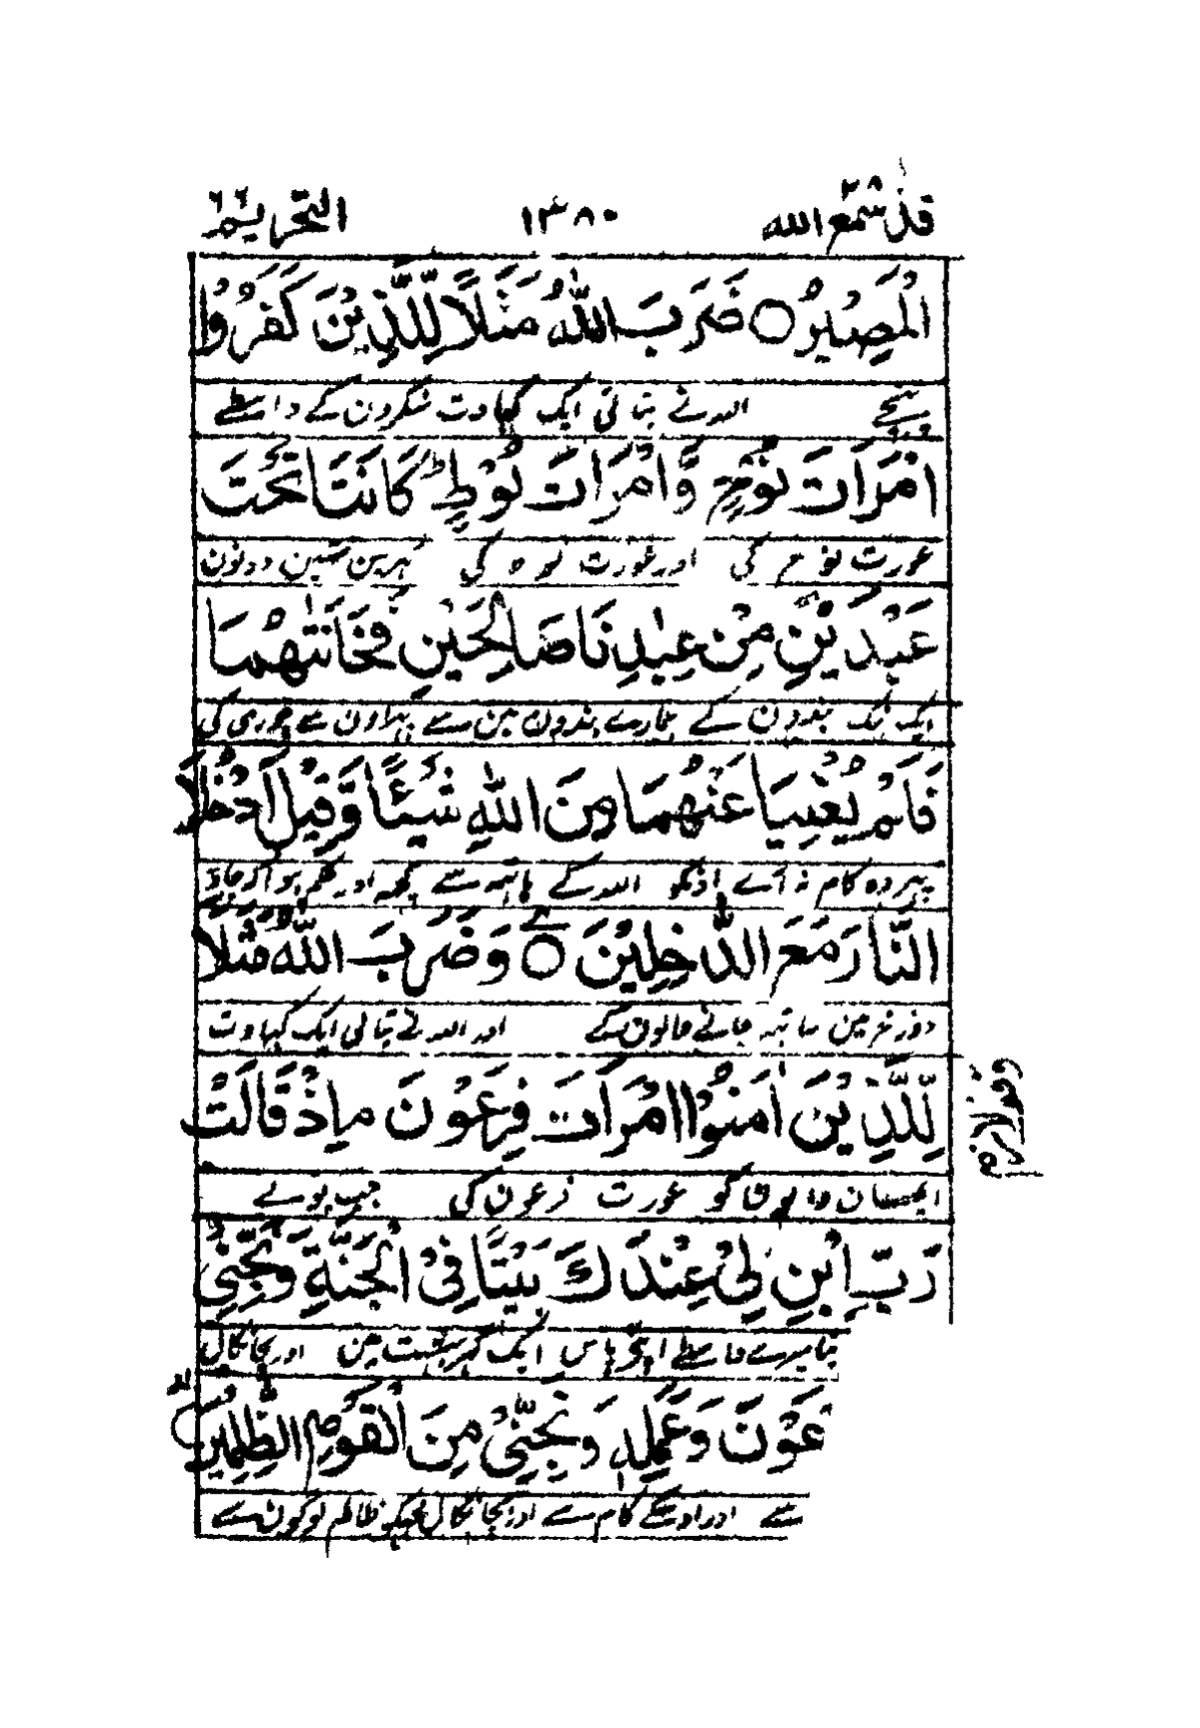 قد سمع الله ٢٨ ١٣٨٠ التحریم ٦٦
الْمَصِيْرُ ○ ضَرَبَ اللّٰهُ مَثَلًا لِّلَّذِيْنَ كَفَرُوا
پہنچے اللہ نے بتائی ایک کہاوت منکرون کے واسطے
امْرَاَتَ نُوْحٍ وَّامْرَاَتَ لُوْطٍ ؕ كَانَتَا تَحْتَ
عورت نوح کی اور عورت لوط کی گہر مین تہین دونون
عَبْدَيْنِ مِنْ عِبَادِنَا صَالِحَيْنِ فَخَانَتٰهُمَا
ایک نیک بندون کے ہمارے بندون مین سے پہر اون سے چوری کی
فَلَمْ يُغْنِيَا عَنْهُمَا مِنَ اللّٰهِ شَيْـًٔا وَّقِيْلَ ادْخُلَا
پہر وہ کام نہ آے اونکو اللہ کے ہاتہہ سے کچہہ اور حکم ہوا کہ جاؤ
النَّارَ مَعَ الدّٰخِلِيْنَ ○ وَضَرَبَ اللّٰهُ مَثَلًا
دوزخ مین ساتہہ جانے والون کے اور اللہ نے بتائی ایک کہاوت
لِّلَّذِيْنَ اٰمَنُوا امْرَاَتَ فِرْعَوْنَ ۘ اِذْ قَالَتْ
وقف لازم
ایمان والون کو عورت فرعون کی جب بولے
رَبِّ ابْنِ لِيْ عِنْدَكَ بَيْتًا فِي الْجَنَّةِ وَنَجِّنِيْ
بنا میرے واسطے اپنے پاس ایک گہر بہشت مین اور بچا نکال
عَوْنَ وَعَمَلِهٖ وَنَجِّنِيْ مِنَ الْقَوْمِ الظّٰلِمِيْنَ
سے اور اوسکے کام سے اور بچا نکال مجہکو ظالم لوگون سے